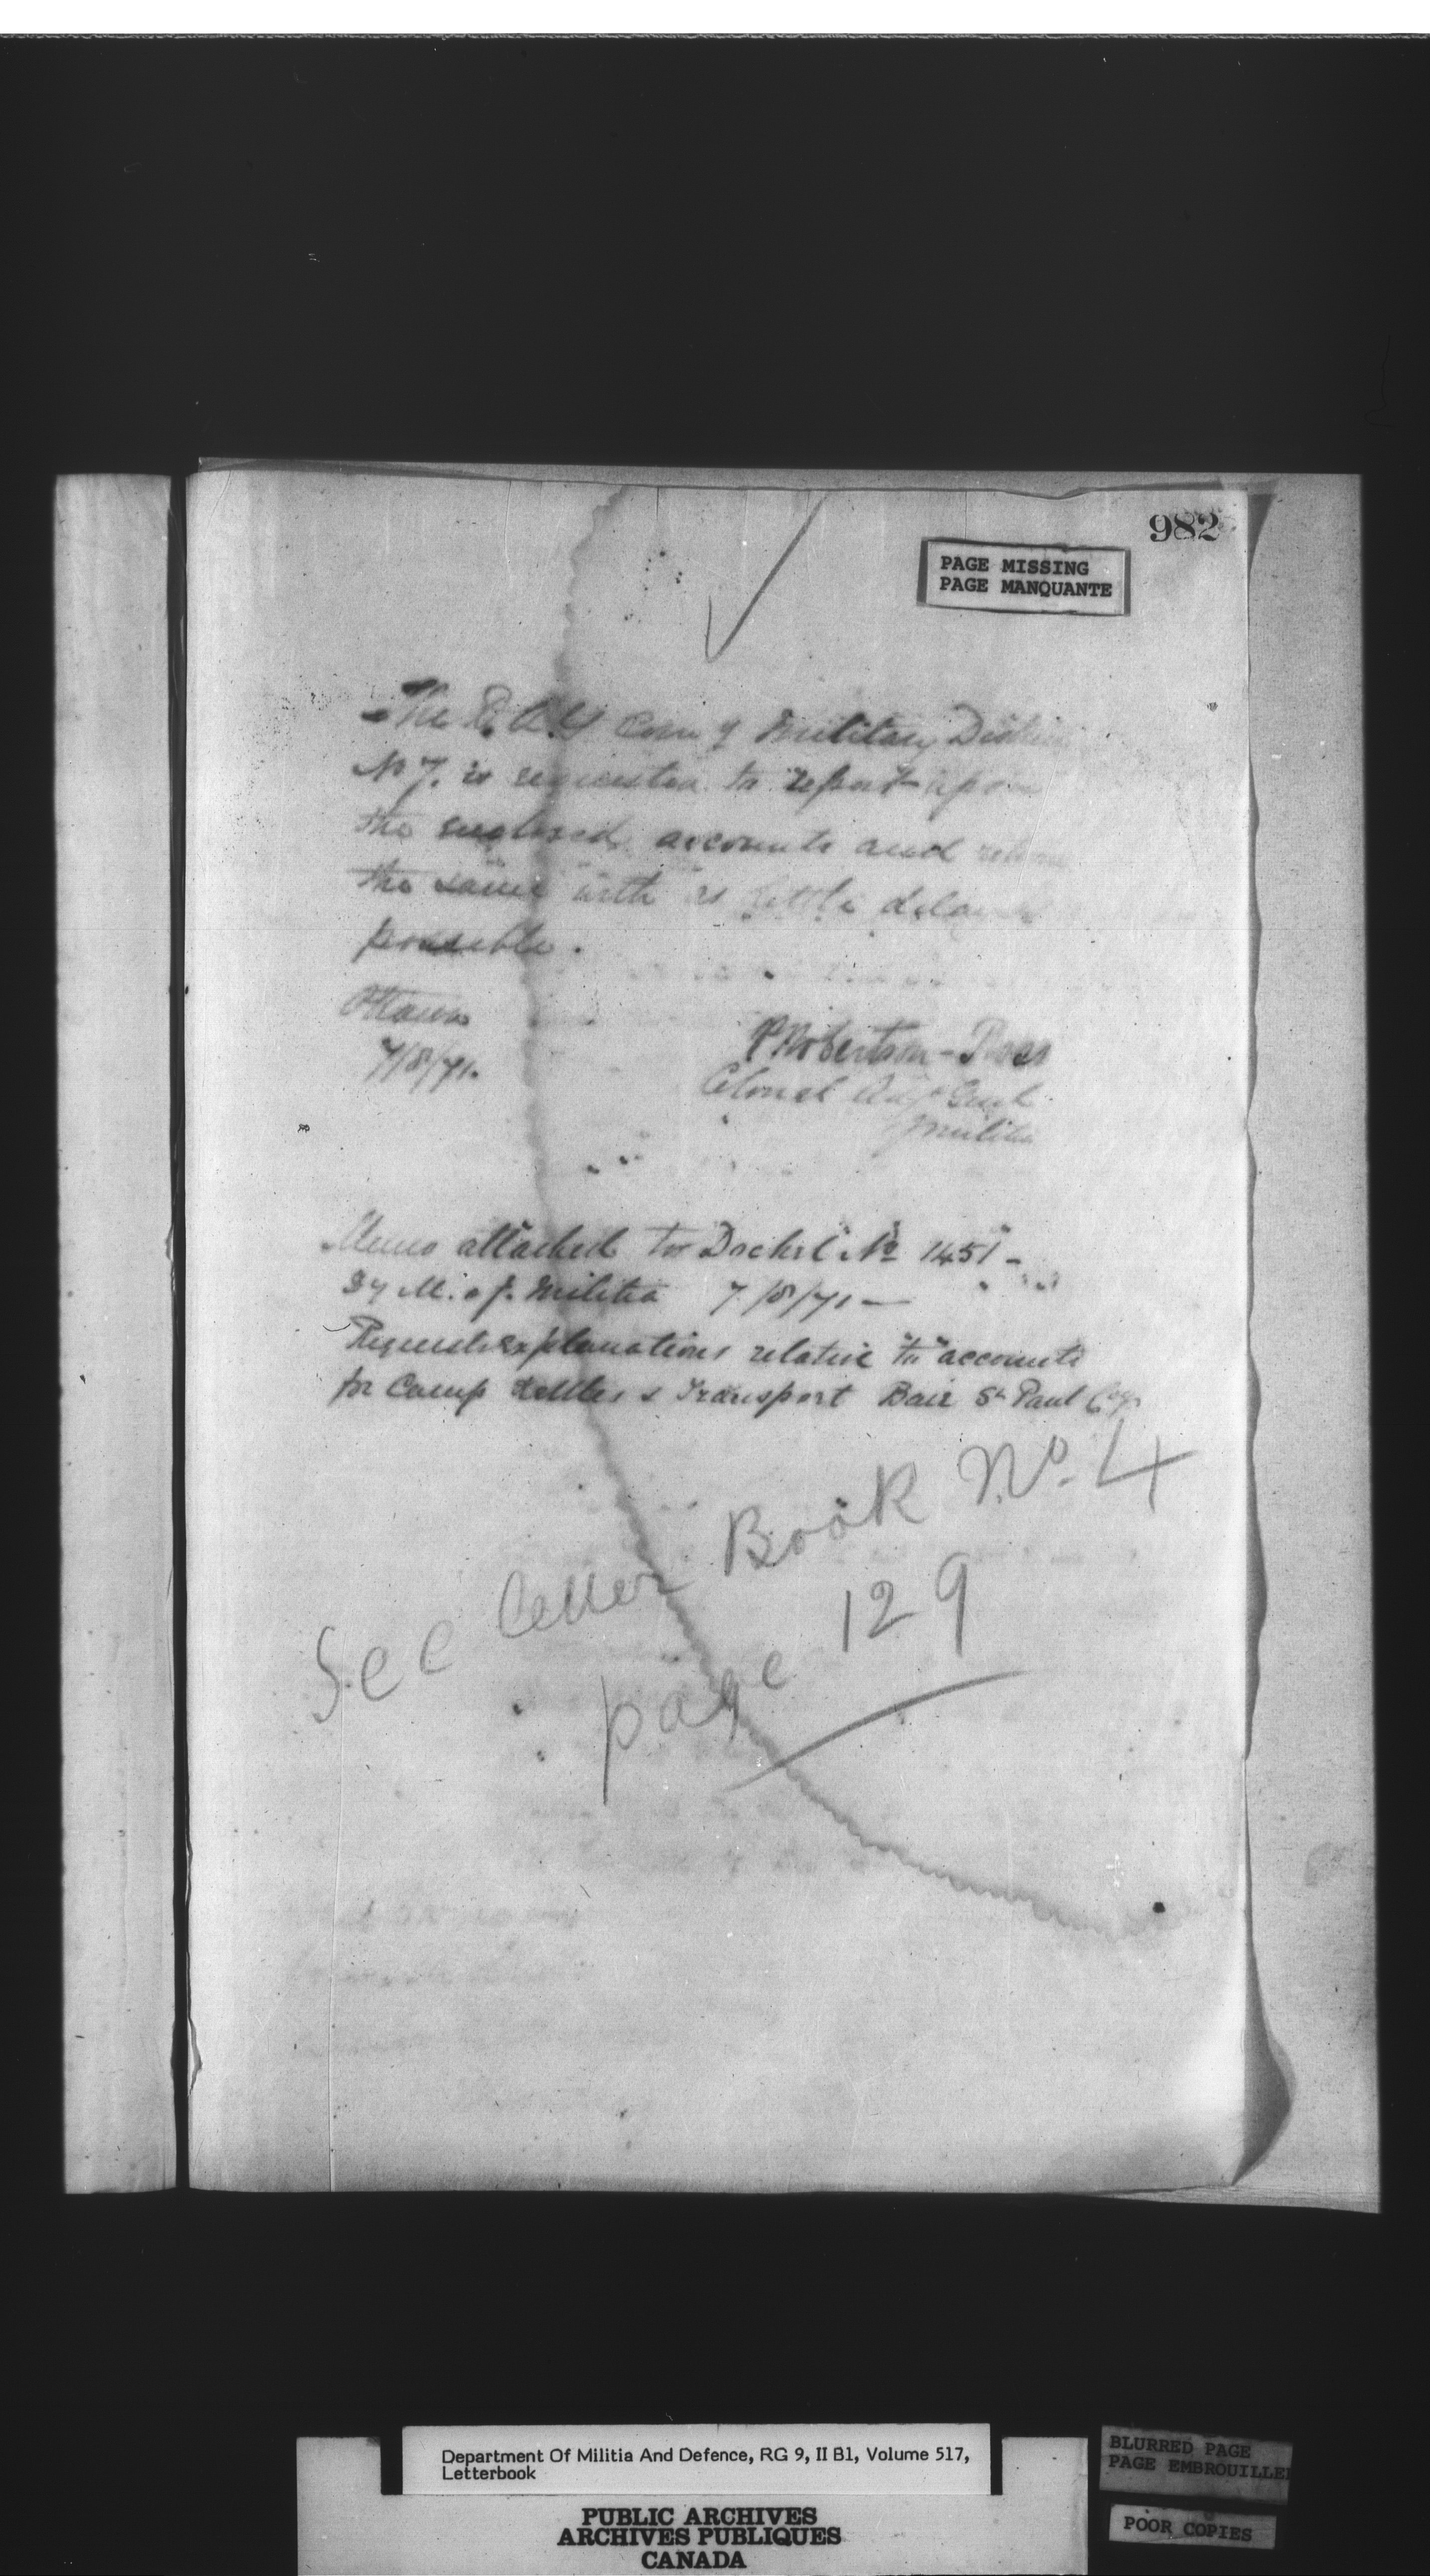 982
PAGE MISSING
PAGE MANQUANTE
The D. A. G Com g Military Distric
No 7. is requested to report upon
the enclosed accounts and return
the same with as little delay
possible.
Ottawa
7/8/71.
P Robertson-Ross
Colonel Adjt Genl
Militia
Memo attached to Docket No 1451 -
By M. of Militia 7/8/71 —
Requests explanations relative to accounts
for Camp Kettles & Transport Baie St Paul Coy
See Letter Book No. 4
page 129
Department Of Militia And Defence, RG 9, II B1, Volume 517,
Letterbook
PUBLIC ARCHIVES
ARCHIVES PUBLIQUES
CANADA
BLURRED PAGE
PAGE EMBROUILLE
POOR COPIES